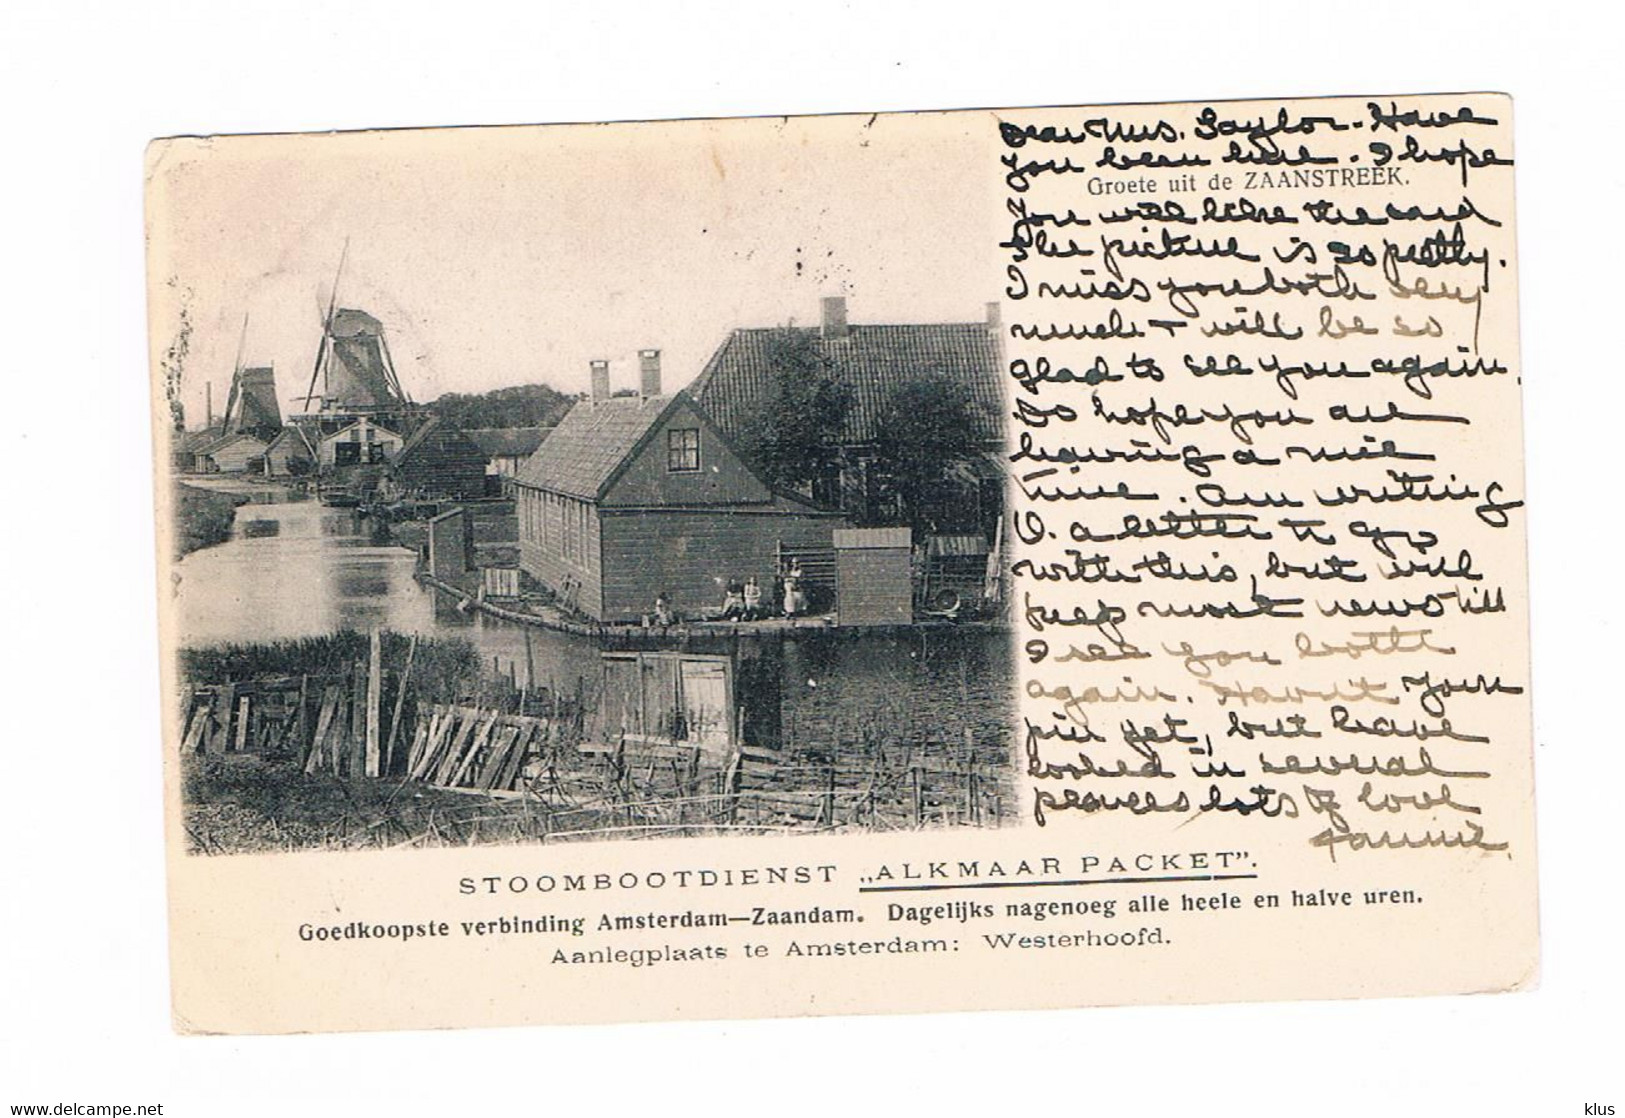 Dear Mrs. Taylor - Have
you been here. I hope
Groete uit de ZAANSTREEK.
you will like the card
The picture is so pretty.
I miss you both very
much + will be so
glad to see you again.
Do hope you are
having a nice
time. Am writing
V. a letter to go
with this, but will
keep most news till
I see you both
again. Haven't your
pin yet, but have
looked in several
places lots of love
Fannie.
STOOMBOOTDIENST „ALKMAAR PACKET”.
Goedkoopste verbinding Amsterdam—Zaandam. Dagelijks nagenoeg alle heele en halve uren.
Aanlegplaats te Amsterdam: Westerhoofd.
https://www.delcampe.net
klus